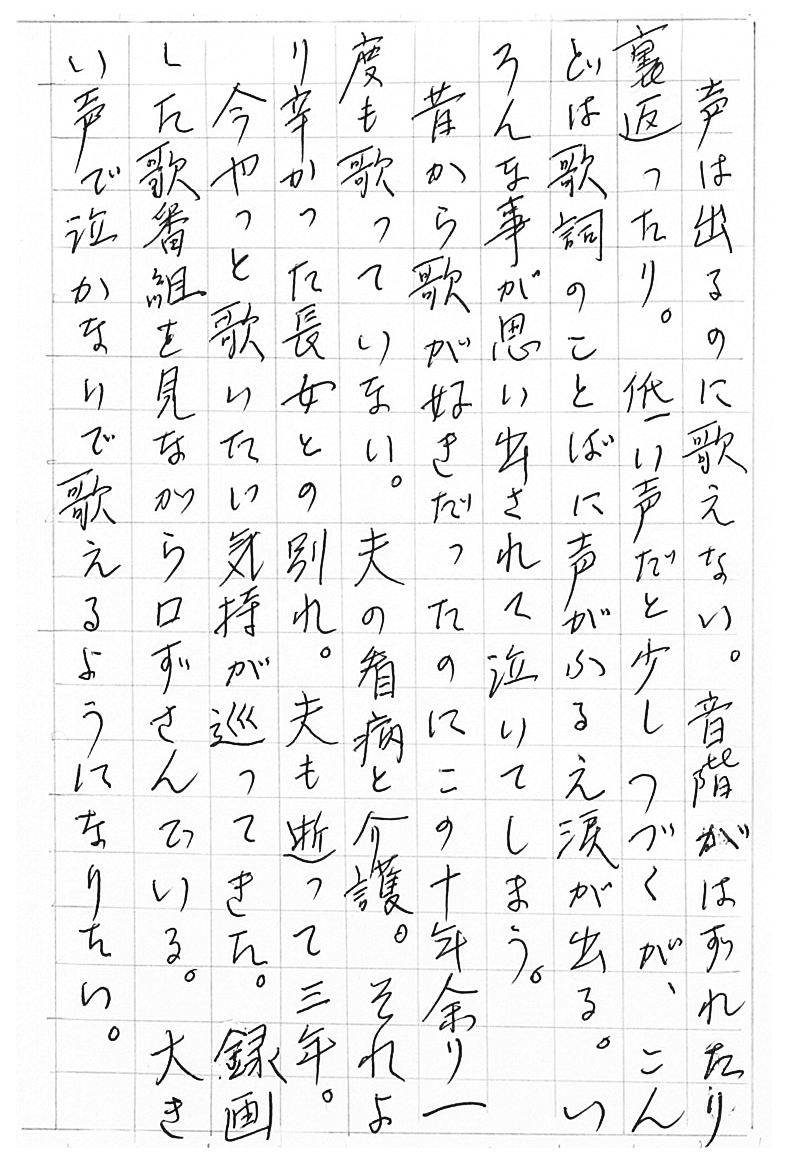 声は出るのに歌えない。音階がはずれたり
裏返ったり。低い声だと少しつづくが、こん
どは歌詞のことばに声がふるえ涙が出る。い
ろんな事が思い出されて泣いてしまう。
昔から歌が好きだったのにこの十年余り一
度も歌っていない。夫の看病と介護。それよ
り辛かった長女との別れ。夫も逝って三年。
今やっと歌いたい気持が巡ってきた。録画
した歌番組を見ながら口ずさんでいる。大き
い声で泣かないで歌えるようになりたい。